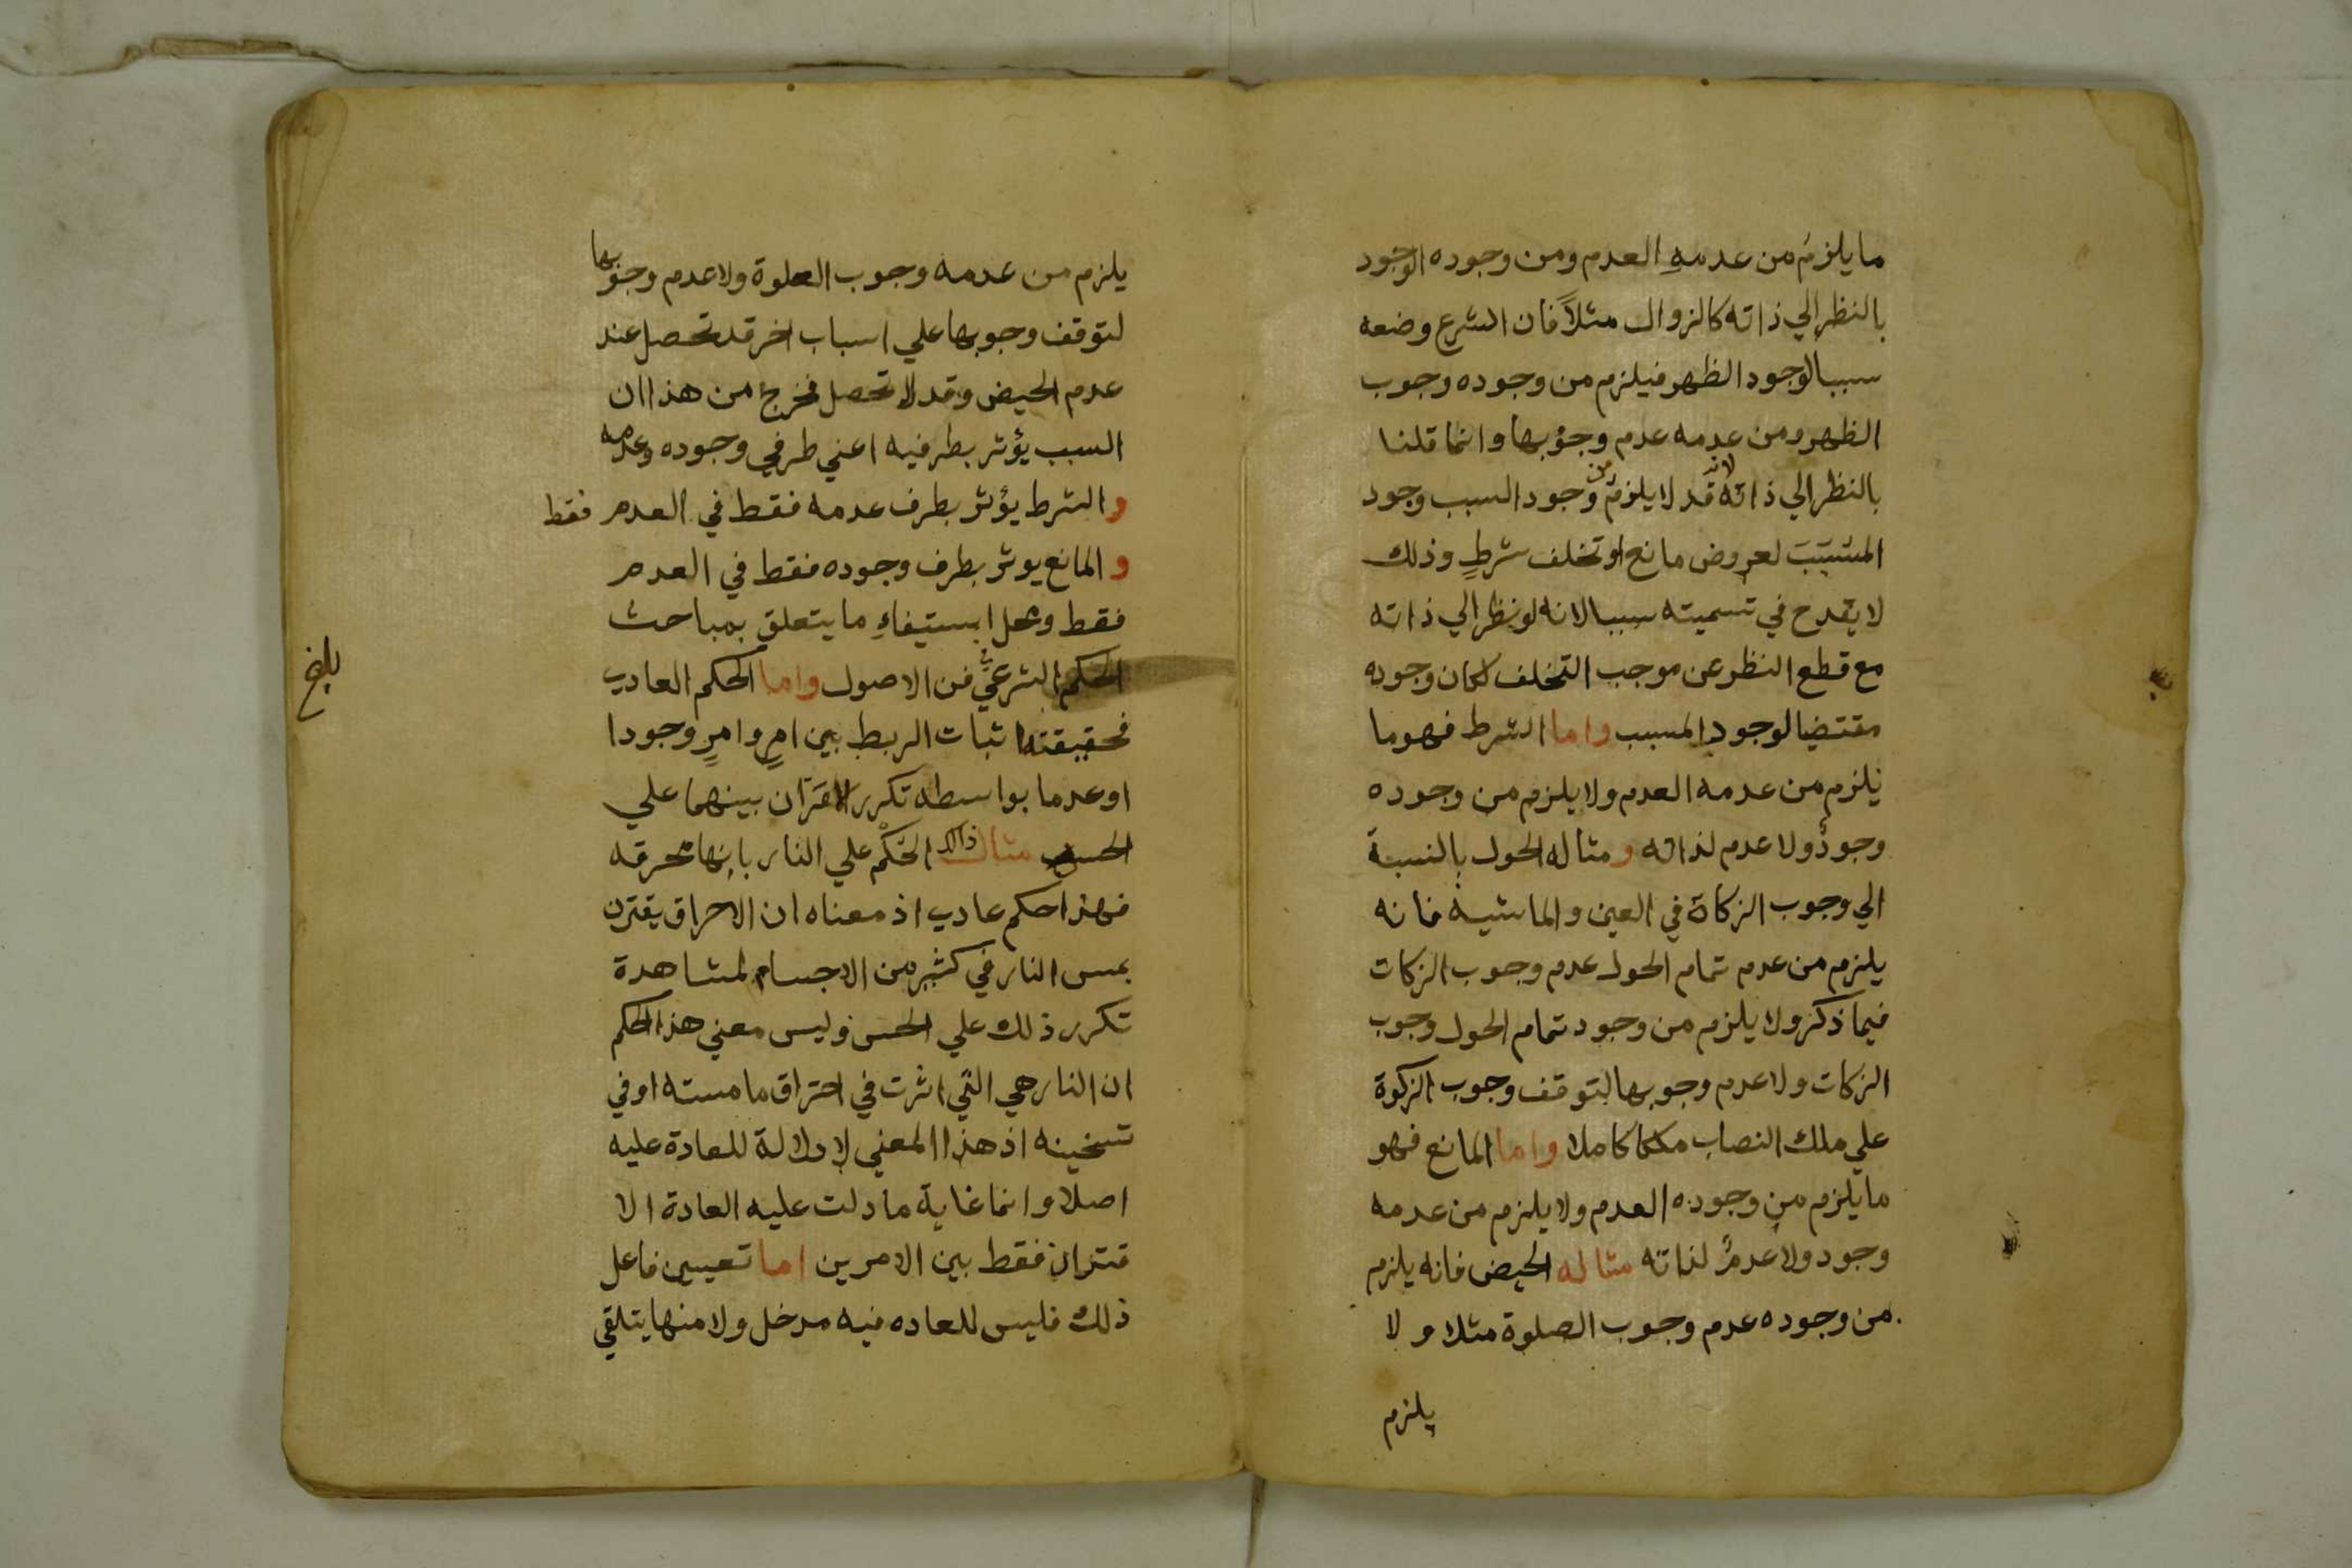 ما يلزم من عدمه العدم ومن وجوده الوجود
بالنظر الي ذاته كالزوال مثلاً فان الشرع وضعه
سببا لوجود الظهر فيلزم من وجوده وجوب
الظهر ومن عدمه عدم وجوبها وانما قلنا
بالنظر الي ذاته لانه قد لا يلزم من وجود السبب وجود
المسَبَبَ لعروض مانع او تخلف شرطٍ وذلك
لا يقدح في تسميته سببا لانه لو نظر الي ذاته
مع قطع النظر عن موجب التخلف لكان وجوده
مقتضيا لوجود المسبب واما الشرط فهو ما
يلزم من عدمه العدم ولا يلزم من وجوده
وجودٌ ولا عدم لذاته ومثاله الحول بالنسبة
الي وجوب الزكاة في العين والماشية فانه
يلزم من عدم تمام الحول عدم وجوب الزكات
فيما ذكر ولا يلزم من وجود تمام الحول وجوب
الزكات ولا عدم وجوبها لتوقف وجوب الزكوة
علي ملك النصاب ملكا كاملا واما المانع فهو
ما يلزم من وجوده العدم ولا يلزم من عدمه
وجود ولا عدمٌ لذاته مثاله الحيض فانه يلزم
من وجوده عدم وجوب الصلوة مثلا ولا
يلزم
يلزم من عدمه وجوب الصلوة ولا عدم وجوبها
لتوقف وجوبها علي اسباب اخر قد تحصل عند
عدم الحيض وقد لا تحصل فخرج من هذا ان
السبب يؤثر بطرفيه اعني طرفي وجوده وعدمه
والشرط يؤثر بطرف عدمه فقط في العدم فقط
والمانع يوثر بطرف وجوده فقط في العدم
فقط ومحل استيفاءِ ما يتعلق بمباحث
الحكم الشرعيِّ فن الاصول واما الحكم العادي
فحقيقته اثبات الربط بين امرٍ وامرٍ وجودا
او عدما بواسطه تكرر القران بينهما علي
الحس مثال ذالك الحُكْم علي النار بانها محرقه
فهذا حكم عادي اذ معناه ان الاحراق يقترن
بمس النار في كثير من الاجسام لمشاهدة
تكرر ذلك علي الحس وليس معني هذا الحكم
ان النار هي التي اثرت في احتراق ما مسته او في
تسخينه اذ هذا المعني لا دلالة للعادة عليه
اصلا وانما غاية ما دلت عليه العادة الا
قتران فقط بين الامرين اما تعيين فاعل
ذلك فليس للعاده فيه مدخل ولا منها يتلقي
بلغ